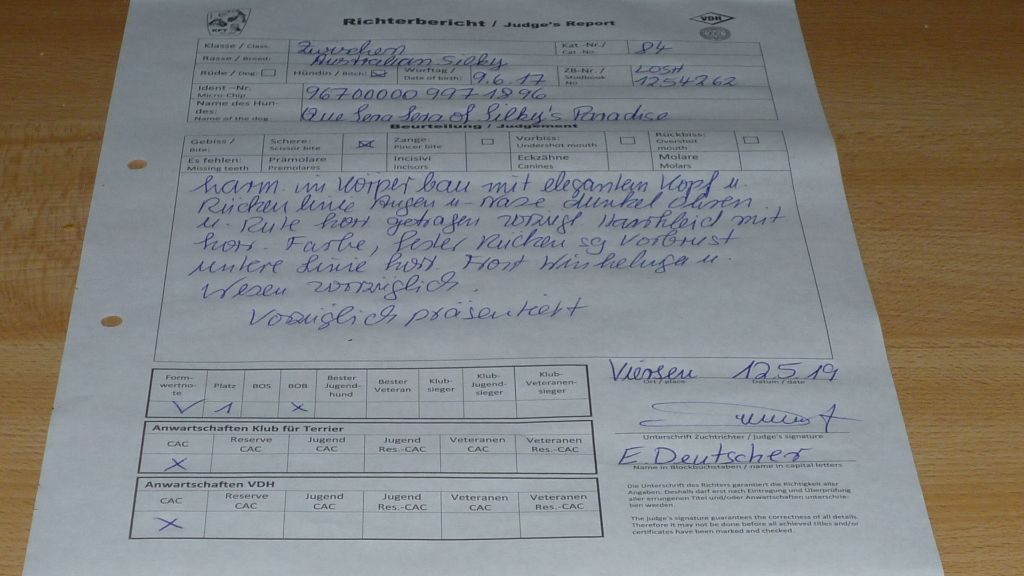 KFT
Richterbericht / Judge's Report
VDH
Klasse / Class: Kat.-Nr./ Cat.-No. 84
Rasse / Breed: Australian Silky
Rüde / Dog: Hündin / Bitch: Wurftag / Date of birth: 9.6.17 ZB-Nr./ Studbook No LOSH 1254262
Ident-Nr. Micro-Chip 967000009971896
Name des Hundes: Name of the dog Que Sera Sera of Silky's Paradise
Beurteilung / Judgement
Gebiss / Bite: Schere: Scissor bite Zange: Pincer bite Vorbiss: Undershot mouth Rückbiss: Overshot mouth
Es fehlen: Missing teeth Prämolare Premolares Incisivi Incisors Eckzähne Canines Molare Molars
harm. im Körperbau mit elegantem Kopf u.
Rückenlinie Augen u. Nase dunkel Ohren
u. Rute korr getragen vorzügl Haarkleid mit
korr. Farbe, fester Rücken sg Vorbrust
untere Linie korr. Front Winkelunge u.
Wesen vorzüglich.
Vorzüglich präsentiert
Formwertnote Platz BOS BOB Bester Jugendhund Bester Veteran Klubsieger Klub-Jugendsieger Klub-Veteranensieger
V 1 X
Viersen 12.5.19
Ort / place Datum / date
Anwartschaften Klub für Terrier
CAC Reserve CAC Jugend CAC Jugend Res.-CAC Veteranen CAC Veteranen Res.-CAC
X
Unterschrift Zuchtrichter / judge's signature
E. Deutscher
Name in Blockbuchstaben / name in capital letters
Anwartschaften VDH
CAC Reserve CAC Jugend CAC Jugend Res.-CAC Veteranen CAC Veteranen Res.-CAC
X
Die Unterschrift des Richters garantiert die Richtigkeit aller
Angaben. Deshalb darf erst nach Eintragung und Überprüfung
aller errungenen Titel und/oder Anwartschaften unterschrie-
ben werden.
The judge's signature guarantees the correctness of all details.
Therefore it may not be done before all achieved titles and/or
certificates have been marked and checked.